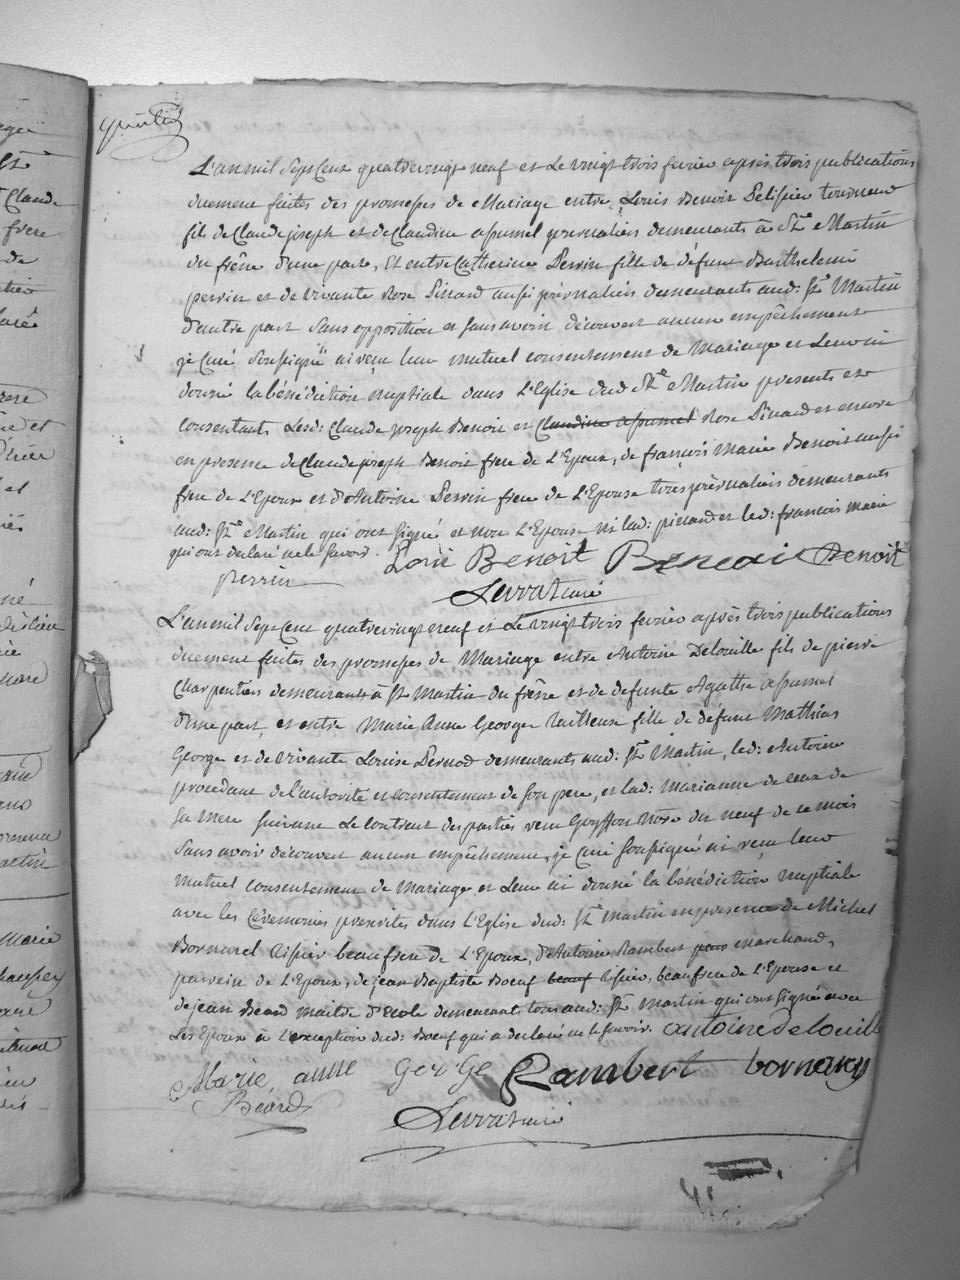 L'an mil sept cent quatre vingt neuf et le vingt trois fevrier après trois publications
duement faites des promesses de Mariage entre Louis Benoit Pelissier tourneur
fils de Claude joseph et de Claudine apsumel journaliers demeurants à St Martin
du frêne d'une part, Et entre Catherine Perrin fille de défunt Barthelemi
perrin et de vivante Rose Pinard aussi journaliers demeurants aud: St Martin
d'autre part sans opposition et sans avoir découvert aucun empêchement
je Curé soussigné ai reçu leur mutuel consentement de Mariage et leur ai
donné la bénédiction nuptiale dans L'Eglise dud St Martin presents et
consentants Lesd: Claude joseph Benoit et Claudine apsumel Rose Pinard et encore
en presence de Claude joseph Benoit frere de L'Epoux, de françois Marie Benoit aussi
frere de L'Epoux et d'Antoine Perrin frere de L'Epouse tous journaliers demeurants
aud: St Martin qui ont signé et non L'Epouse ni lad: pinard et led: francois marie
qui ont declaré ne le savoir. Loui Benoit Benoit Benoit
perrin
Serra Curé
L'an mil sept cent quatre vingt neuf et le vingt trois fevrier après trois publications
duement faites des promesses de Mariage entre Antoine Delouille fils de pierre
Charpentier demeurants à St Martin du frêne et de defunte Agathe apsumel
d'une part, et entre Marie Anne George tailleuse fille de défunt Mathias
George et de vivante Louise Pernod demeurants aud: St Martin, led: Antoine
procedant de l'autorité et consentement de son pere, et lad: Marianne de ceux de
sa mere suivant Le contract des parties reçu Goyffon Nore du neuf de ce mois
sans avoir découvert aucun empêchement, je Curé soussigné ai reçu leur
mutuel consentement de Mariage et leur ai donné la bénédiction nuptiale
avec les Cérémonies prescrites dans L'Eglise dud: St Martin en presence de Michel
Bornarel tissier beaufrere de L'Epoux, d'Antoine Rambert marchand,
parrein de L'Epoux, de jean Baptiste Boeuf beauf tissier, beaufrere de L'Epouse et
de jean Beard maitre d'Ecole demeurant tous aud: St Martin qui ont signé avec
Les Epoux à L'exception dud: Boeuf qui a declaré ne le savoir. antoine delouille
Marie anne GerGe Rambert bornarel
Beard
Serra Curé